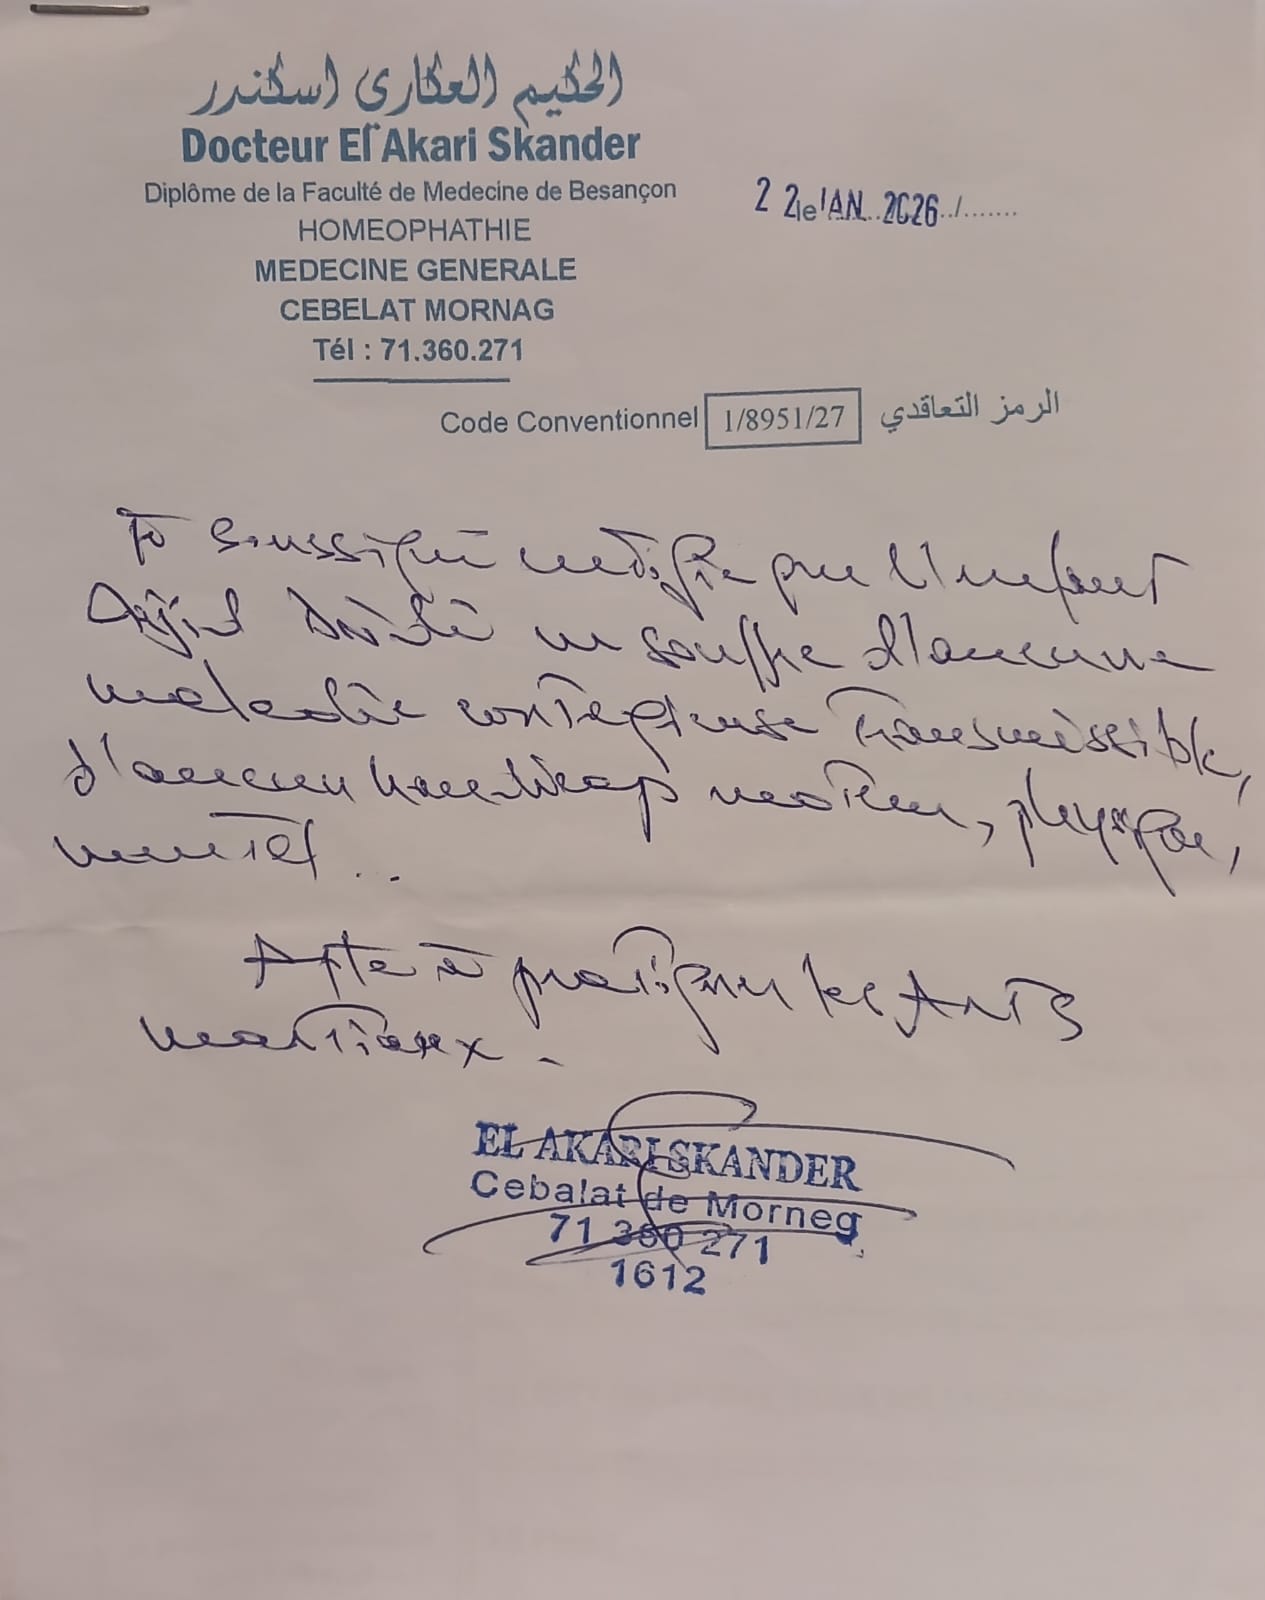 الحكيم العكاري اسكندر
Docteur El Akari Skander
Diplôme de la Faculté de Medecine de Besançon
22 le JAN. 2026 /.......
HOMEOPHATHIE
MEDECINE GENERALE
CEBELAT MORNAG
Tél : 71.360.271
Code Conventionnel 1/8951/27 الرمز التعاقدي
soussigné certifie que l'enfant
ne souffre d'aucune
maladie contagieuse transmissible,
d'aucun handicap moteur, physique,
mental..
Apte à pratiquer les Arts
martiaux.
EL AKARI SKANDER
Cebalat de Morneg
71 360 271
1612